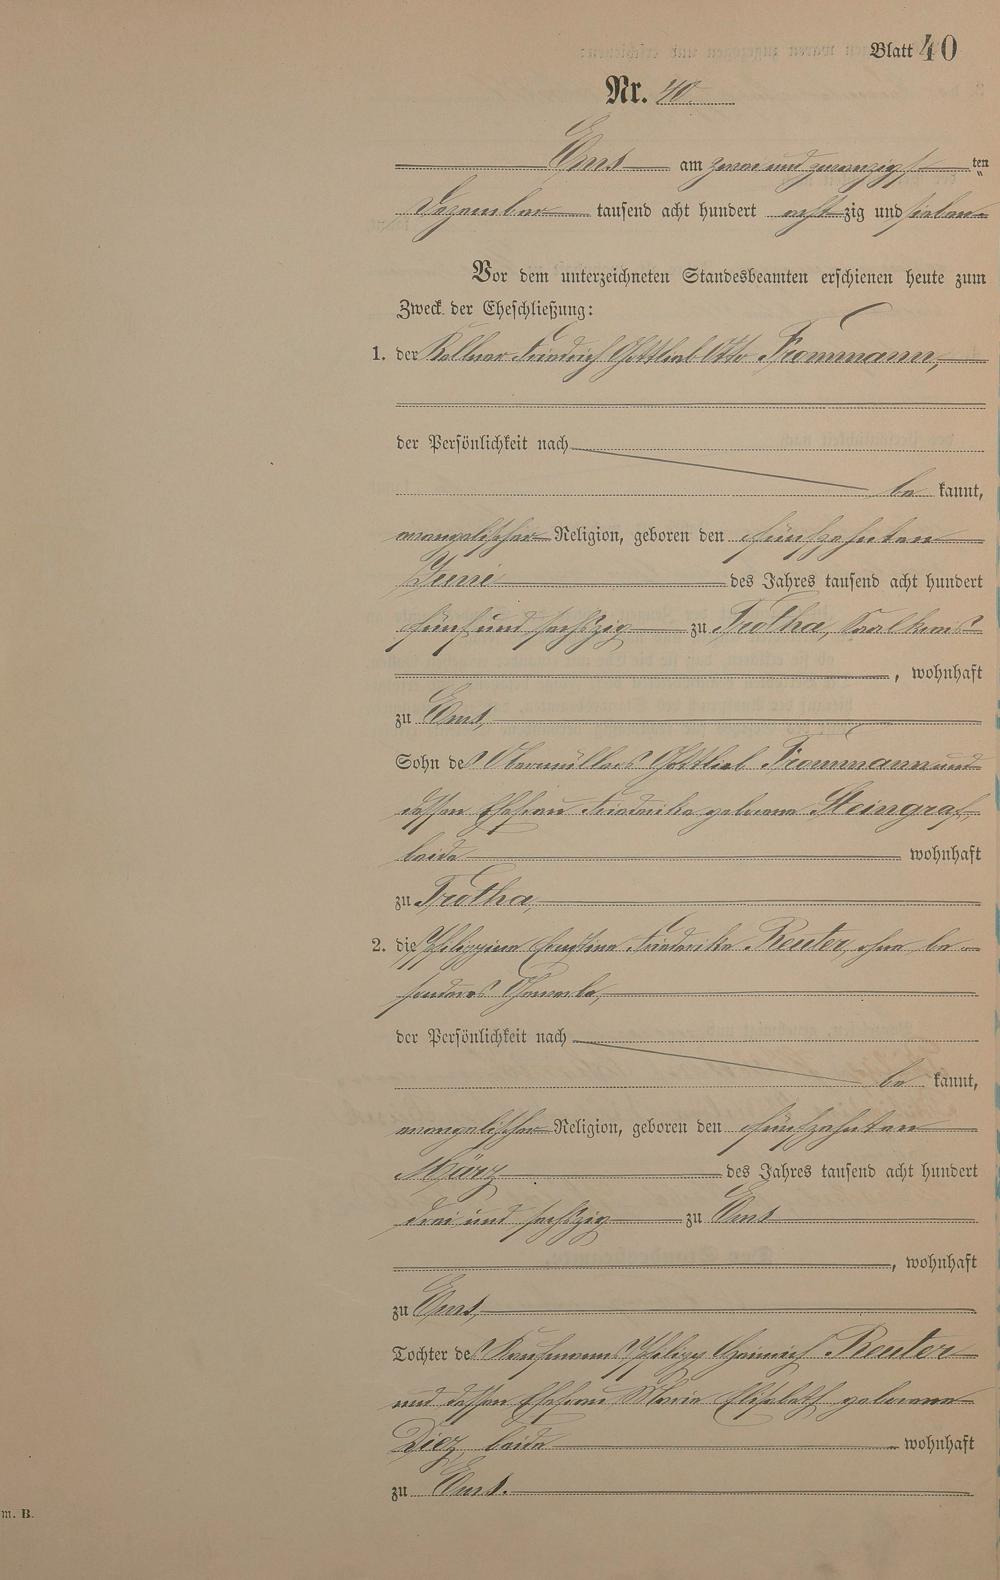 Blatt 40
Nr. 40.
Ems am zwei und zwanzigsten
Dezember tausend acht hundert achtzig und sieben
Vor dem unterzeichneten Standesbeamten erschienen heute zum
Zweck der Eheschließung:
1. der Kellner Friedrich Gottlieb Otto Frommann,
der Persönlichkeit nach
bekannt,
evangelischer Religion, geboren den fünfzehnten
Juni des Jahres tausend acht hundert
fünf und sechszig zu Trotha, Saalkreis
, wohnhaft
zu Ems,
Sohn des Obermüllers Gottlieb Frommann und
dessen Ehefrau Friederike geborene Steingraf,
beide wohnhaft
zu Trotha,
2. die Philippine Caroline Friederike Reuter, ohne be-
sonderes Gewerbe,
der Persönlichkeit nach
bekannt,
evangelischer Religion, geboren den fünfzehnten
März des Jahres tausend acht hundert
drei und sechszig zu Ems
, wohnhaft
zu Ems,
Tochter des Kaufmanns Philipp Heinrich Reuter
und dessen Ehefrau Maria Elisabeth geborene
Diez, beide wohnhaft
zu Ems.
m. B.